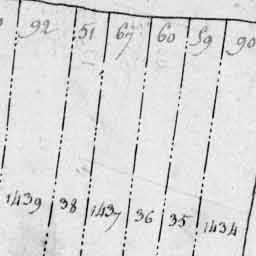 92 51 67 60 59 90
1439 38 1437 36 35 1434